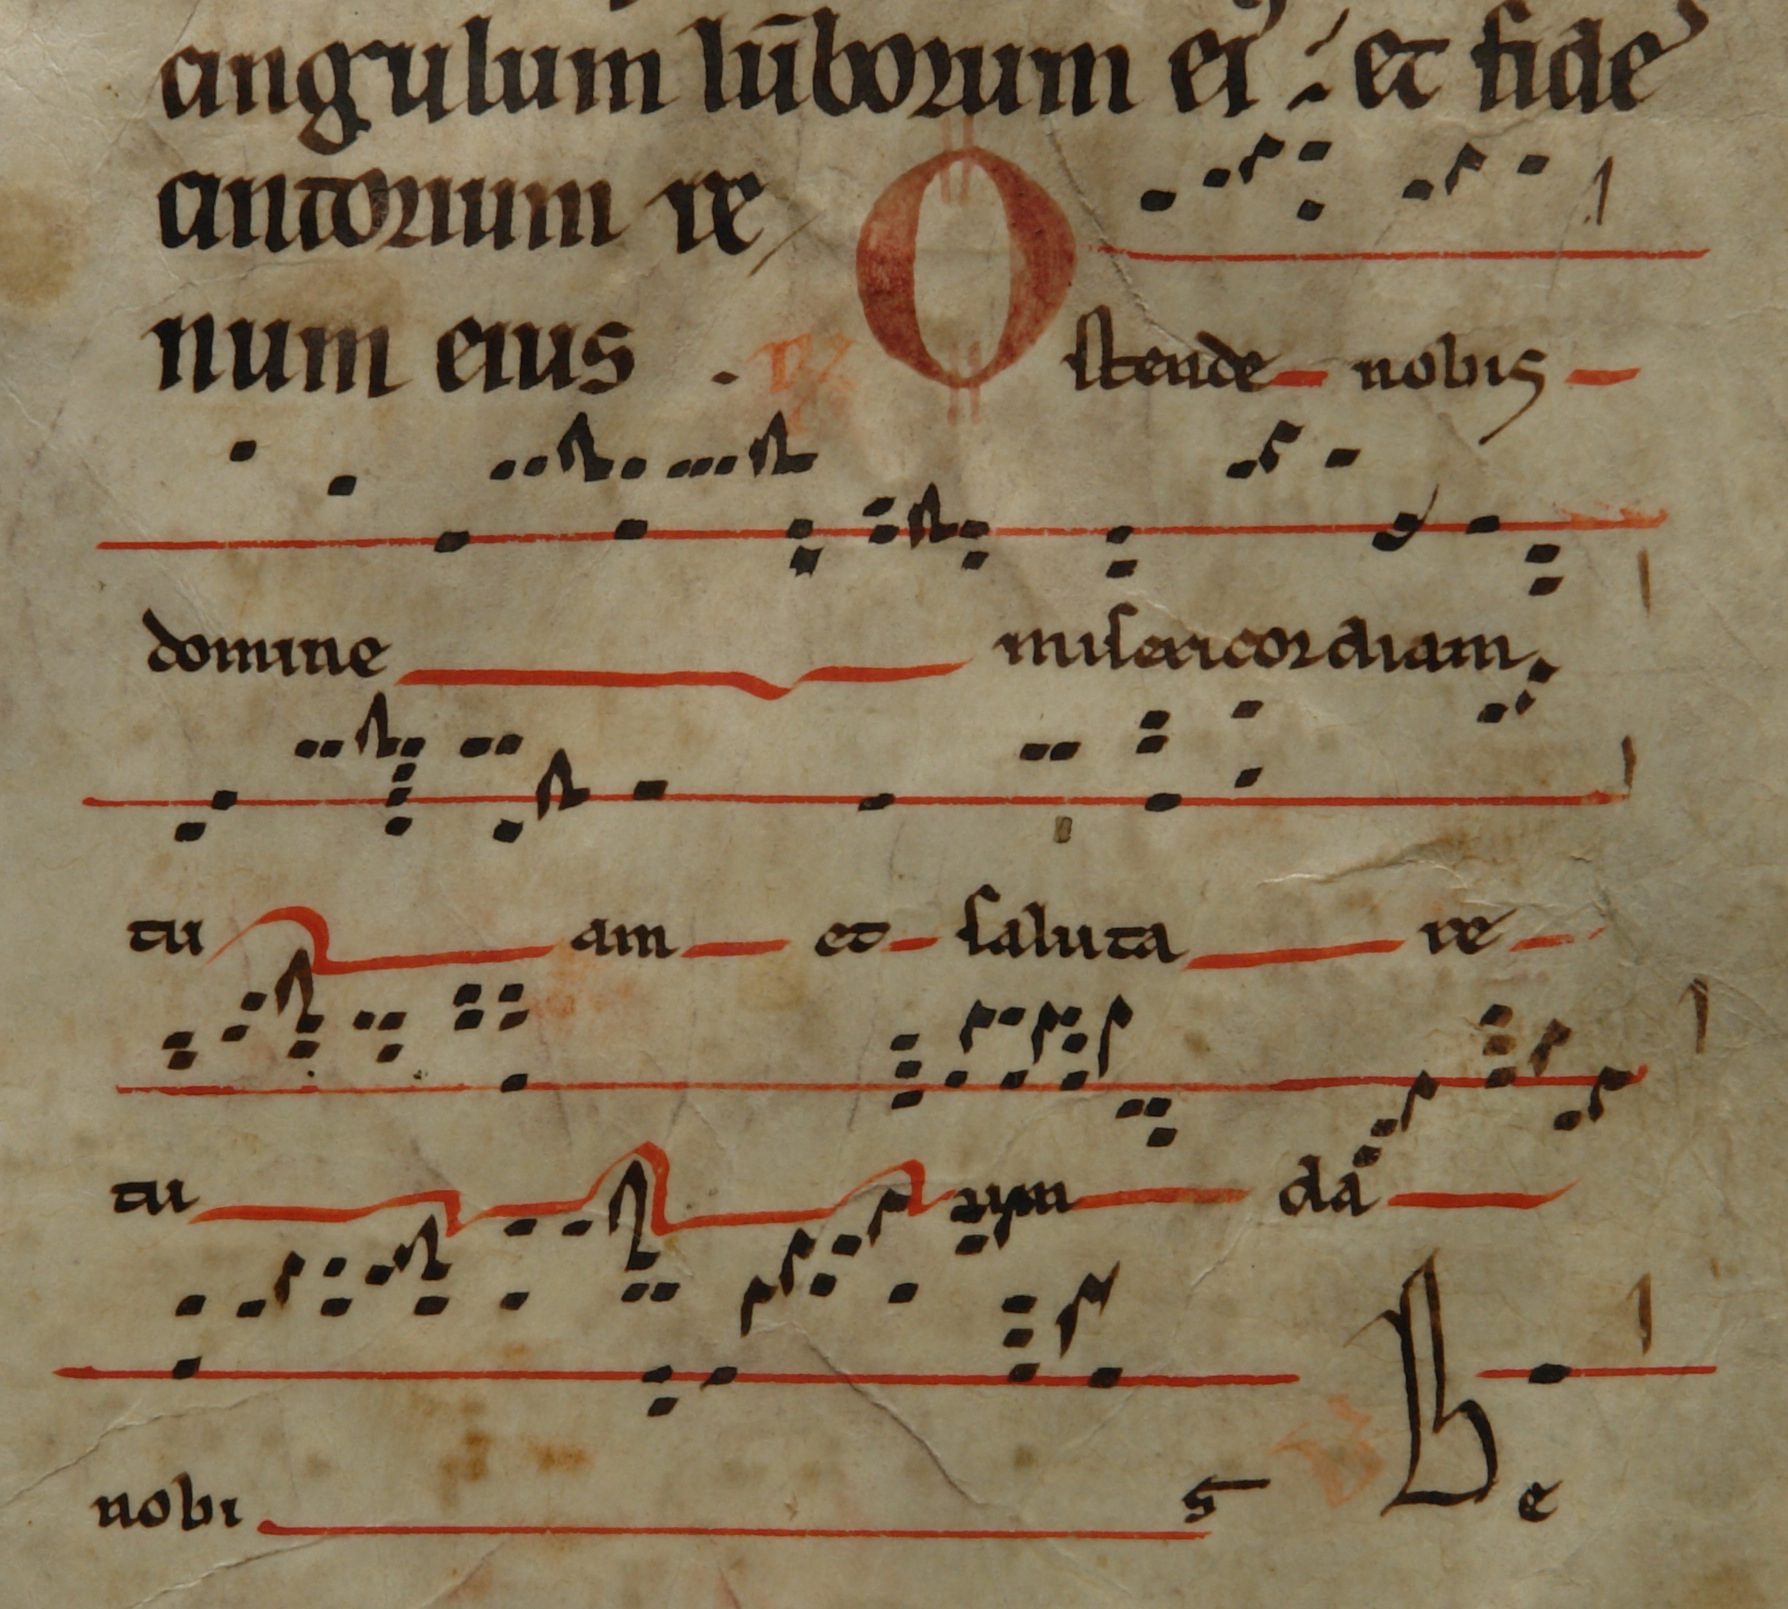 cingulum lūborum eiꝰ : et fide
cinctorium re
num eius . ℟ Ostende nobis
domine misericordiam
tu am et saluta re
tu um da
nobi s ℣ Be